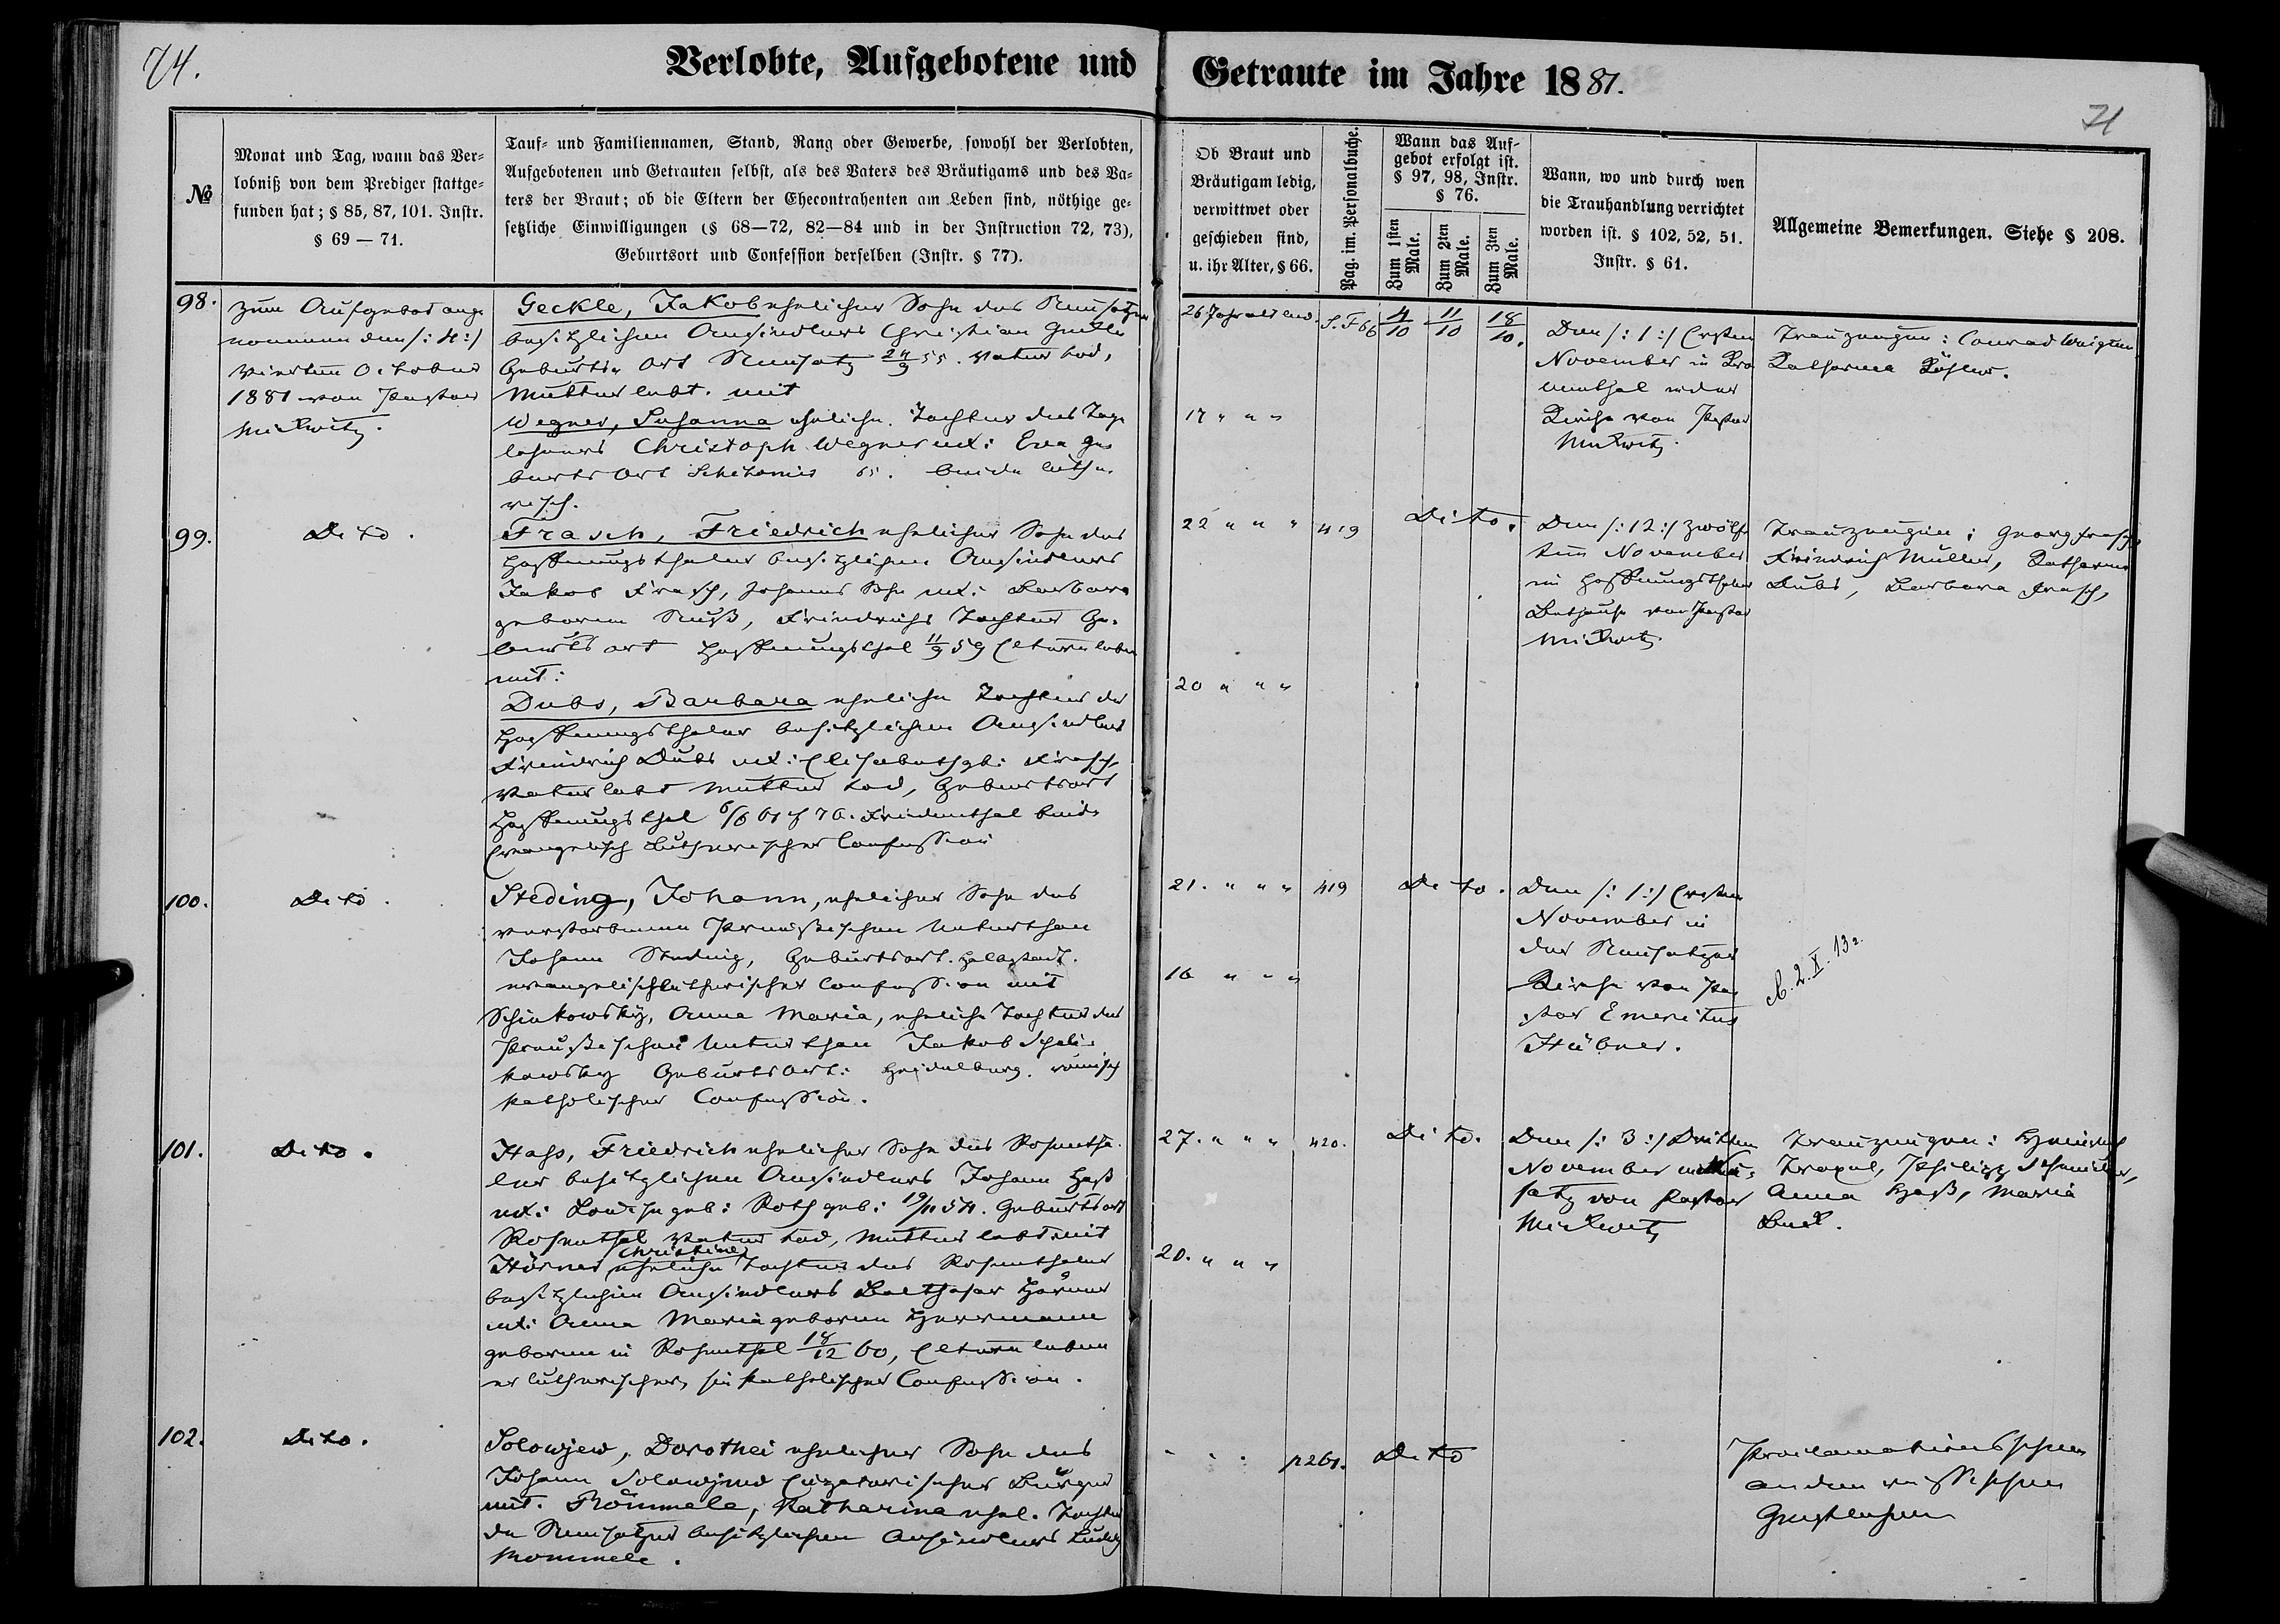 74.
Verlobte, Aufgebotene und Getraute im Jahre 1881.
71
№
Monat und Tag, wann das Ver-
lobniß von dem Prediger stattge-
funden hat; § 85, 87, 101. Instr.
§ 69 — 71.
Tauf- und Familiennamen, Stand, Rang oder Gewerbe, sowohl der Verlobten,
Aufgebotenen und Getrauten selbst, als des Vaters des Bräutigams und des Va-
ters der Braut; ob die Eltern der Ehecontrahenten am Leben sind, nöthige ge-
setzliche Einwilligungen (§ 68—72, 82—84 und in der Instruction 72, 73),
Geburtsort und Confession derselben (Instr. § 77).
Ob Braut und
Bräutigam ledig,
verwittwet oder
geschieden sind,
u. ihr Alter, § 66.
Pag. im. Personalbuche.
Wann das Auf-
gebot erfolgt ist.
§ 97, 98, Instr.
§ 76.
Zum 1sten
Male.
Zum 2ten
Male.
Zum 3ten
Male.
Wann, wo und durch wen
die Trauhandlung verrichtet
worden ist. § 102, 52, 51.
Instr. § 61.
Allgemeine Bemerkungen. Siehe § 208.
98.
zum Aufgebot ange
nommen den /: 4 :/
vierten October
1881 von Pastor
Mickwitz.
Geckle, Jakob ehelicher Sohn des Neusatzer
besitzlichen Ansiedlers Christian Geckle
Geburts Ort Neusatz 24/9 55. Vater tod,
Mutter lebt. mit
Wegner, Susanna eheliche Tochter des Tage
lehners Christoph Wegner ux: Eva Ge
burts Ort Schitomir 65. beide luthe
risch.
26 Jahr alt led.
17 " " "
S. F 66
4/10
11/10
18/10.
Den /: 1 :/ Ersten
November in Kro
nenthal in der
Kirche von Pastor
Mickwitz.
Trauzeugen: Conrad
Katharina
99.
Dito.
Frasch, Friedrich ehelicher Sohn des
Hoffnungsthaler besitzlichen Ansiedlers
Jakob Frasch, Johannes Sohn ux: Barbara
geboren Nuß, Friedrichs Tochter Ge-
burts ort Hoffnungsthal 11/9 59 Eltern leben
mit:
Dubs, Barbara eheliche Tochter des
Hoffnungsthaler besitzlichen Ansiedlers
Friedrich Dubs ux: Elisabeth gb: Frasch,
Vater lebt Mutter tod, Geburtsort
Hoffnungsthal 6/6 61 76. Friedenthal beide
Evangelisch Lutherischer Confession
22 " " "
20 " " "
419
Dito.
Den /: 12 :/ zwölf
ten November
im Hoffnungsthaler
Bethause von Pastor
Mickwitz.
Trauzeugen: Georg Frasch,
Friedrich Müller, Katharina
Dubs, Barbara Frasch,
100.
Dito.
Steding, Johann, ehelicher Sohn des
verstorbenen Preussischen Unterthan
Johann Steding, Geburtsort. Halbstadt.
evangelischlutherischer Confession mit
Schinkowsky, Anna Maria, eheliche Tochter des
Preussischen Unterthan Jakob Schin
kowsky Geburtsort: Heidelberg. römisch
katholischer Confession.
21. " " "
16 " " "
419
Dito.
Den /: 1 :/ Ersten
November in
der Neusatzer
Kirche von Pa
stor Emeritus
Hübner.
2. X. 13
101.
Dito.
Hass, Friedrich ehelicher Sohn des Rosentha
ler besitzlichen Ansiedlers Johann Haß
ux: Louise geb: Roth geb: 19/11 54. Geburtsort
Rosenthal Vater tod, Mutter lebt mit
Christine
Hörner eheliche Tochter des Rosenthaler
besitzlichen Ansiedlers Balthasar Hörner
ux: Anna Maria geborene Herrmann
geboren in Rosenthal 18/12 60, Eltern leben
er lutherischer, sie katholischer Confession.
27. " " "
20. " " "
420.
Dito.
Den /: 3 :/ Dritten
November in Neu
satz von Pastor
Mickwitz
Trauzeugen: Heinrich
Philipp Schneider,
Anna Haß, Maria
102.
Dito.
Solowjew, Dorothei ehelicher Sohn des
Johann Solowjew Bürger
mit. Römmele, Katharina ehel. Tochter
des Neusatzer besitzlichen Ansiedlers Ludwig
Römmele.
" " "
p 261.
Dito
Proclamationsschein
an den russischen
Geistlichen